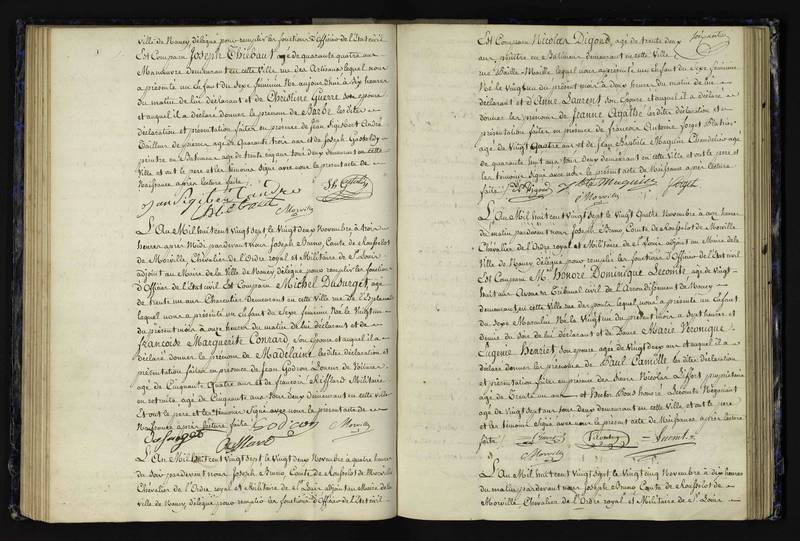 Ville de Nancy délégué pour remplir les fonctions d'Officier de l'Etat civil
Est Comparu Joseph Thiébaut agé de quarante quatre ans
Manœuvre demeurant en cette Ville rue des Artisans lequel nous
a présenté un Enfant du Sexe féminin Né aujourd'hui à Dix heures
du matin de lui déclarant et de Christine Guerre son épouse
et auquel il a déclaré donner le prénom de Barbe les dites
déclaration et présentation faites en présence de Jean Sigisbert André
Tailleur de pierre agé de Quarante trois ans et de Joseph
peintre en Batimens agé de trente cinq ans tous deux demeurant en cette
Ville et ont le pere et les témoins Signé avec nous le présent acte de
Naissance après lecture faite
Jean Sigisber Andre
Thiébaut
Morville
L'An Mil huit cent Vingt Sept le Vingt deux Novembre à trois
heures après Midi pardevant Nous Joseph Bruno Comte de Rousselot
de Morville, Chevalier de l'Ordre royal et Militaire de St Louis
adjoint au Maire de la Ville de Nancy délégué pour remplir les fonctions
d'Officier de l'Etat civil Est Comparu Michel Dusurget, agé
de trente un ans Charcutier Demeurant en cette Ville rue de l'Esplanade
lequel nous a présenté un Enfant du Sexe féminin Né le Vingt un
du présent mois à onze heures du matin de lui déclarant et de
françoise Marguerite Conrard Son Epouse et auquel il a
déclaré donner le prénom de Madelaine les dites déclaration et
présentation faites en présence de Jean Godron Loueur de Voitures
agé de Cinquante Quatre ans et de françois Rifflard Militaire
en retraite agé de Cinquante ans tous deux demeurant en cette Ville
Et ont le pere et les témoins Signé avec nous le présent acte de
Naissance après lecture faite
Dusurget Godron
Morville
L'An Mil huit cent Vingt Sept le Vingt deux Novembre à quatre heures
du Soir pardevant nous Joseph Bruno Comte de Rousselot de Morville
Chevalier de l'Ordre royal et Militaire de St Louis adjoint au Maire de la
Ville de Nancy délégué pour remplir les fonctions d'Officier de l'Etat civil
Est Comparu Nicolas Digout, agé de trente deux
ans, peintre en Batimens demeurant en cette Ville
rue lequel nous a présenté un Enfant du Sexe féminin
Né le Vingt un du présent mois à heures du matin de lui
déclarant et d'Anne Laurent son Epouse et auquel il a déclaré
donner les prénoms de Jeanne Agathe les dites déclaration et
présentation faites en présence de francois Antoine
agé de Vingt Quatre ans et de Jean Baptiste Maguin agé
de quarante Sept ans tous deux demeurant en cette Ville et ont le pere et
les témoins Signé avec nous le présent acte de Naissance après lecture
faite
Maguin
Morville
L'An Mil huit cent Vingt Sept le Vingt Quatre Novembre à onze heures
du matin pardevant nous Joseph Bruno Comte de Rousselot de Morville
Chevalier de l'Ordre royal et Militaire de St Louis adjoint au Maire de la
Ville de Nancy délégué pour remplir les fonctions d'Officier de l'Etat civil
Est Comparu Mr Honoré Dominique Lecomte, agé de Vingt
huit ans Avoué au Tribunal civil de l'Arrondissement de Nancy
demeurant en cette Ville rue des ponts lequel nous a présenté un Enfant
du Sexe Masculin Né le Vingt un du présent mois à Sept heures et
demie du Soir de lui déclarant et de Dame Marie Véronique
Eugénie Henriet son épouse agée de Vingt deux ans et auquel il a
déclaré donner les prénoms de Paul Camille les dites déclaration
et présentation faites en présence des Sieurs Nicolas Propriétaire
agé de trente un ans et Hector Honoré Lecomte Négociant
agé de Vingt Sept ans tous deux demeurant en cette Ville et ont le pere
et les témoins Signé avec nous le présent acte de Naissance après lecture
faite
Morville
L'An Mil huit cent Vingt Sept le Vingt cinq Novembre à dix heures
du matin pardevant nous Joseph Bruno Comte de Rousselot de
Morville, Chevalier de l'Ordre royal et Militaire de St Louis